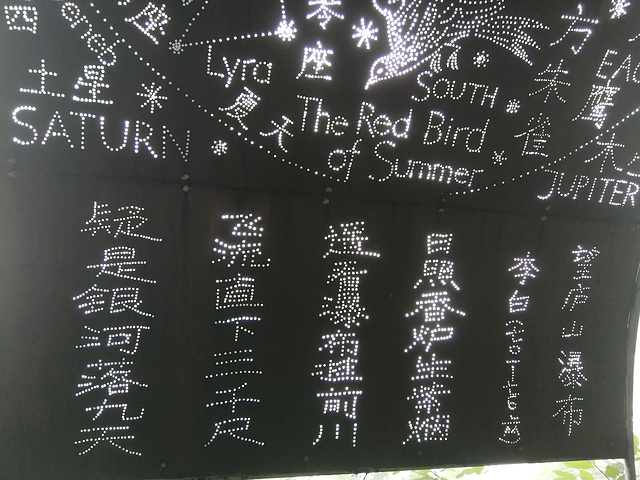 座
座
方
土星
Lyra
SOUTH
朱雀
鷹
SATURN
夏天
The Red Bird
of Summer
JUPITER
望庐山瀑布
李白
日照香炉生紫烟
遥看瀑布挂前川
飛流直下三千尺
疑是銀河落九天